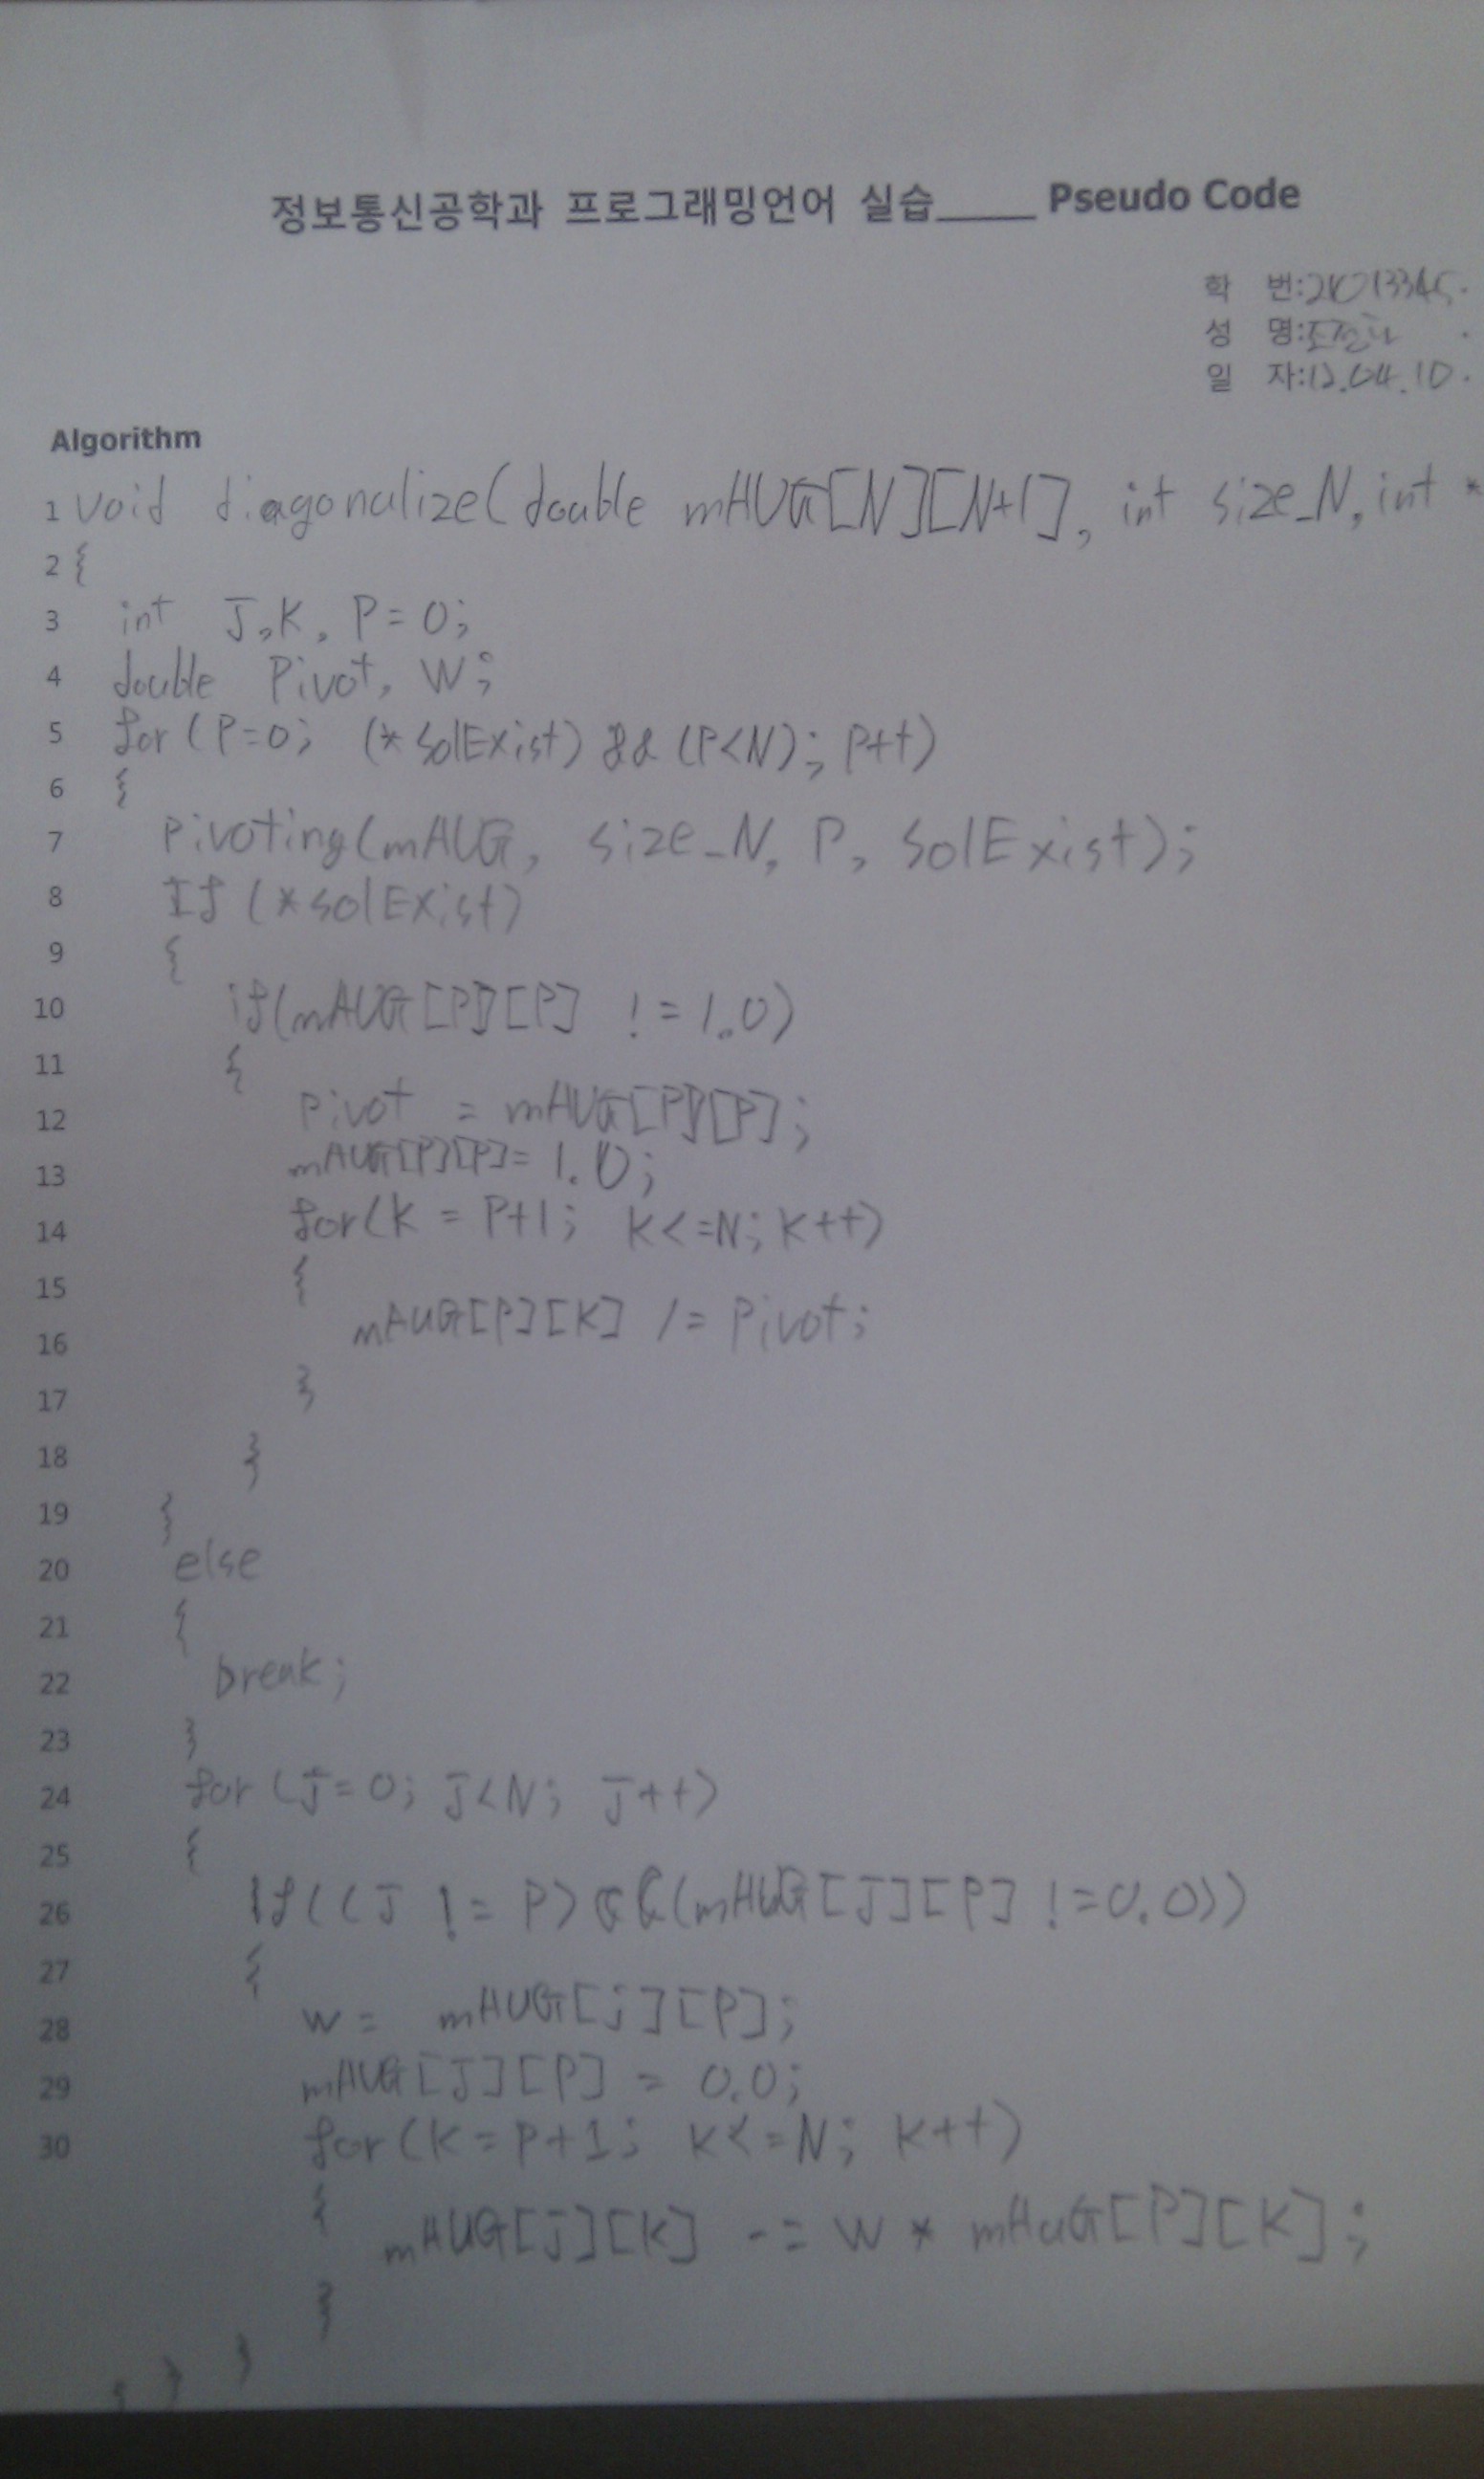 정보통신공학과 프로그래밍언어 실습_____ Pseudo Code
학 번:
성 명:
일 자:12.04.10.
Algorithm
1 void diagonalize(double mAUG[N][N+1], int size_N, int *
2 {
3 int J,K, P=0;
4 double Pivot, W;
5 for (P=0; (*SolExist) && (P<N); P++)
6 {
7 Pivoting(mAUG, size_N, P, SolExist);
8 If (*solExist)
9 {
10 if(mAUG[P][P] != 1.0)
11 {
12 Pivot = mAUG[P][P];
13 mAUG[P][P]= 1.0;
14 for(K = P+1; K<=N; K++)
15 {
16 mAUG[P][K] /= Pivot;
17 }
18 }
19 }
20 else
21 {
22 break;
23 }
24 for (J=0; J<N; J++)
25 {
26 If((J != P) &&(mAUG[J][P] !=0.0))
27 {
28 W = mAUG[j][P];
29 mAUG[J][P] = 0.0;
30 for(K=P+1; K<=N; K++)
{ mAUG[j][K] -= W * mAUG[P][K];
}
} } }